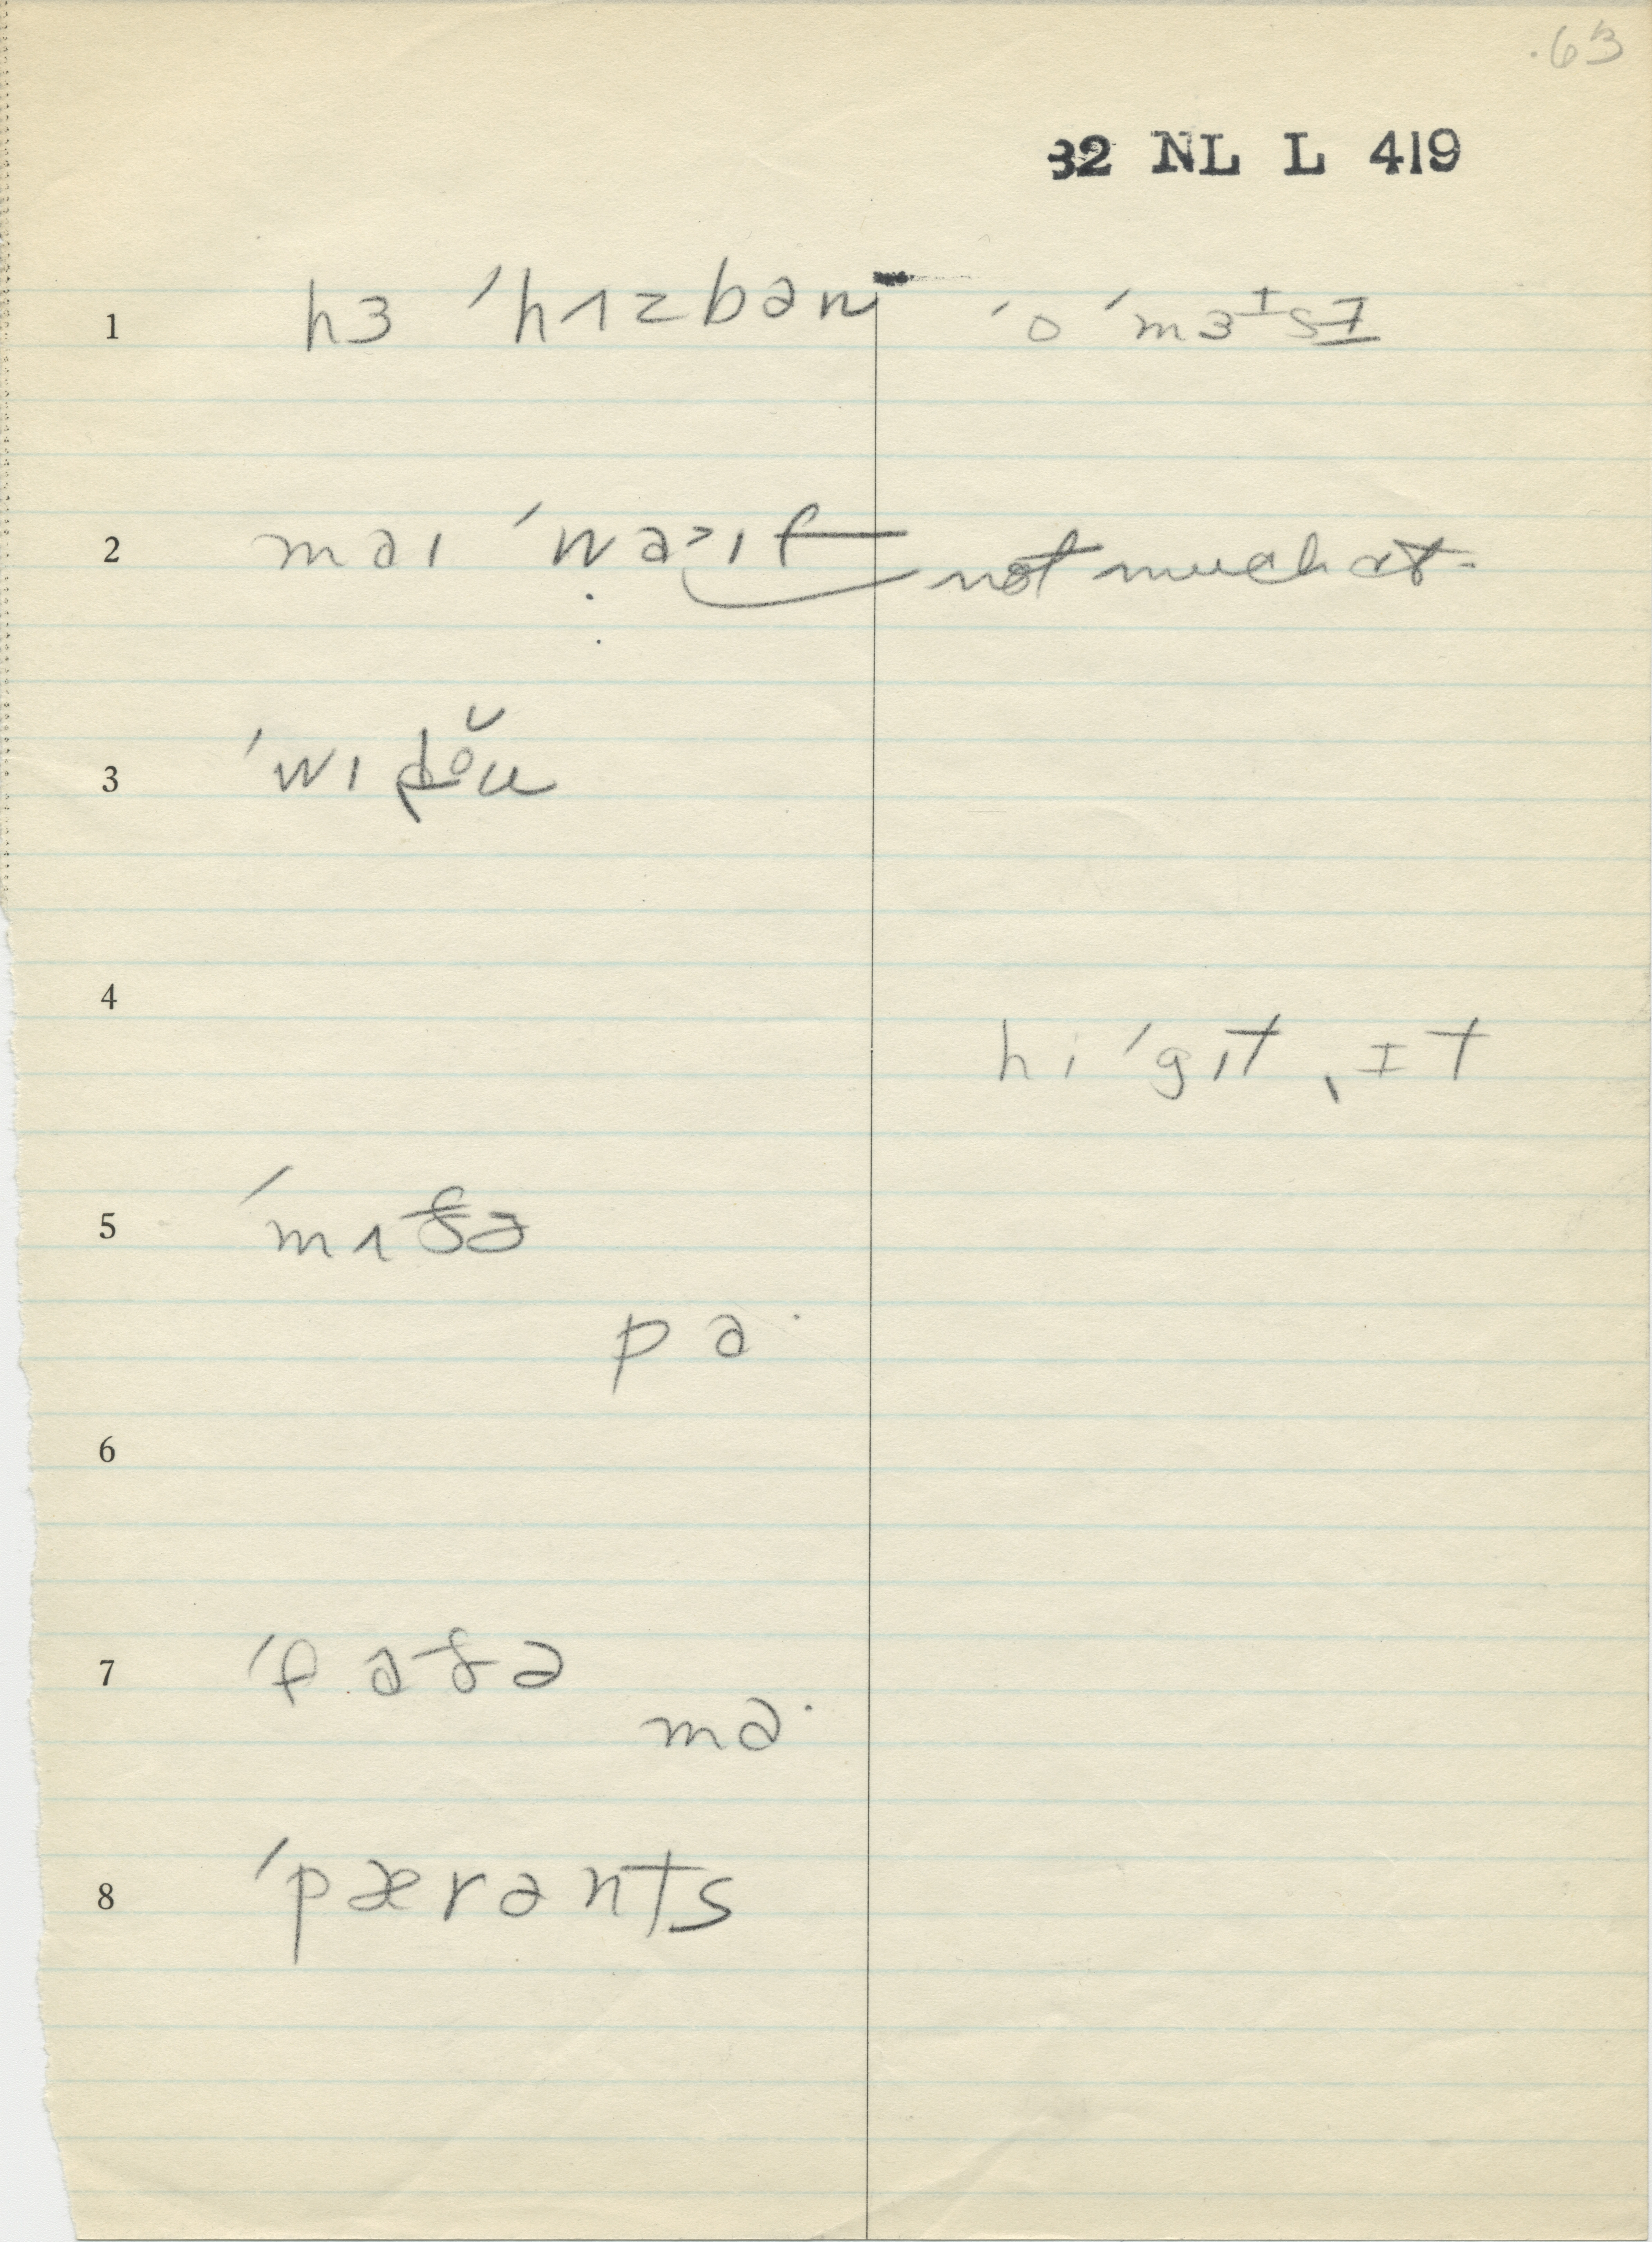 .63
32 NL L 419
1 hɜ ˈhʌzbən ˈo ˈmɜᶦsɪ
2 maɪ ˈwaᵊɪf not much at-
3 ˈwɪ
4
hi ˈgɪt ˌɪt
5 ˈmʌðə
pa·
6
7 ˈfaðə
ma·
8 ˈpærənts